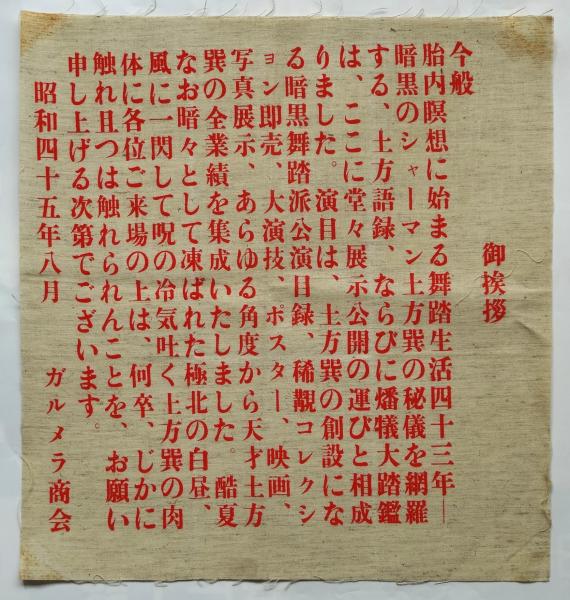 御挨拶
今般
胎内瞑想に始まる舞踏生活四十三年―
暗黒のシャーマン土方巽の秘儀を網羅
する、土方語録、ならびに燔犠大踏鑑
は、ここに堂々展示公開の運びと相成
りました。演目は、土方巽の創設にな
る暗黒舞踏派公演目録、稀覯コレクシ
ョン即売、大演技、ポスター、映画、
写真展示、あらゆる角度から天才土方
巽の全業績を集成いたしました。酷夏
なお暗々として凍ばれた極北の白昼、
風に一閃して呪の冷気吐く土方巽の肉
体に各位ご来場の上は、何卒、じかに
触れ且つは触れられんことを、お願い
申し上げる次第でございます。
昭和四十五年八月
ガルメラ商会